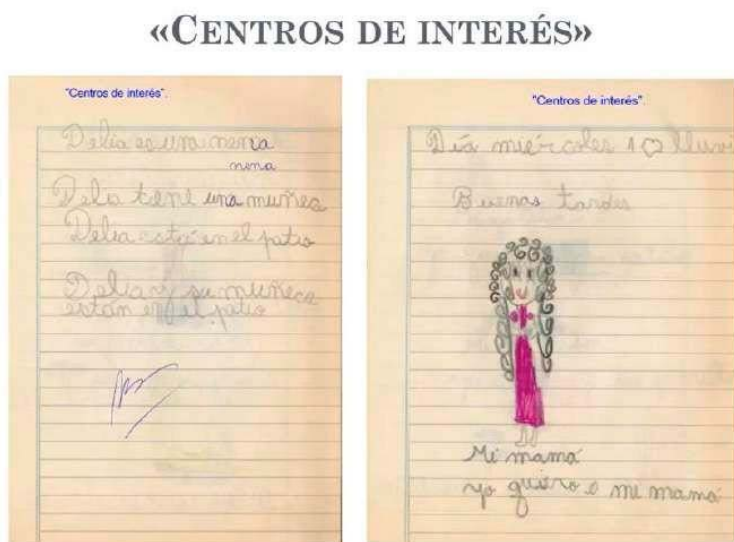 «CENTROS DE INTERÉS»
"Centros de interés".
Delia es una nena
nena
Delia tene una muñeca
Delia está en el patio
Delia y su muñeca
están en el patio
"Centros de interés".
Día miércoles 10
Buenas tardes
Mi mamá
yo quiero a mi mamá